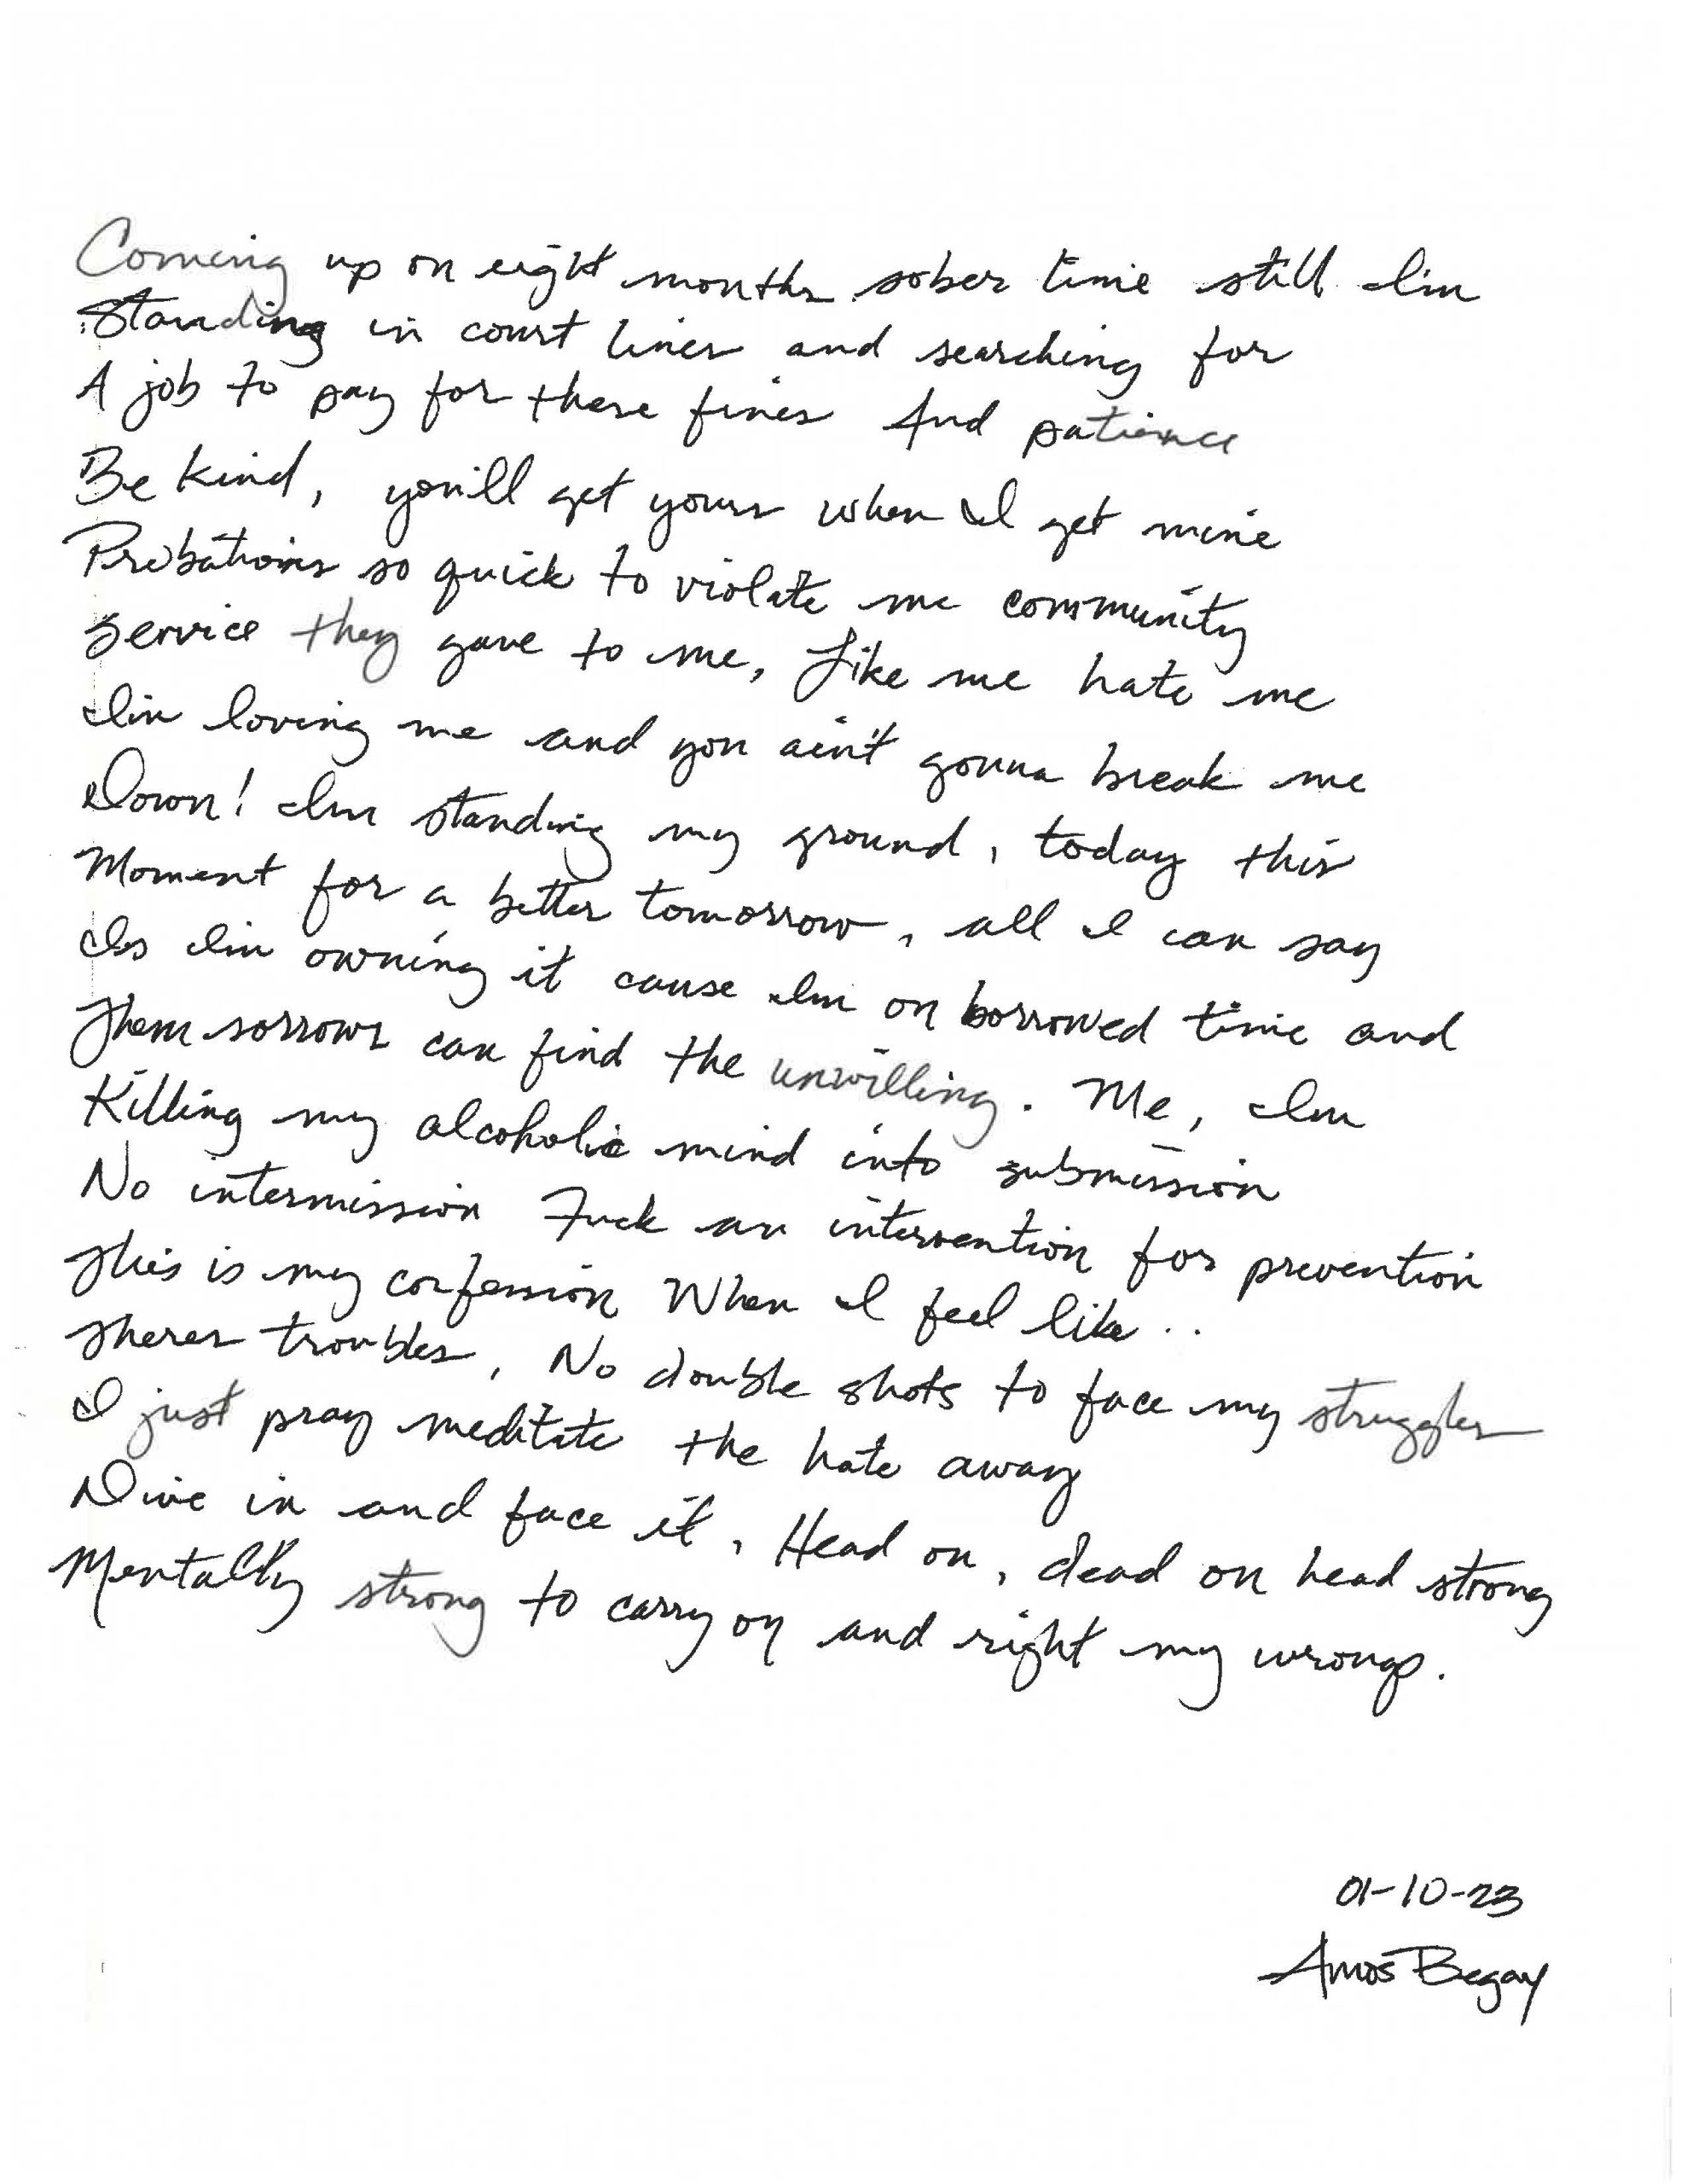 Coming up on eight months sober time still Im
Standing in court lines and searching for
A job to pay for these fines And patience
Be kind, you'll get yours when I get mine
Probations so quick to violate me community
Service they gave to me, Like me hate me
Im loving me and you ain't gonna break me
Down! Im standing my ground, today this
Moment for a better tomorrow, all I can say
Is Im owning it cause Im on borrowed time and
Them sorrows can find the unwilling. Me, Im
Killing my alcoholic mind into submission
No intermission Fuck an intervention for prevention
This is my confession When I feel like..
Theres troubles, No double shots to face my struggles
I just pray meditate the hate away
Dive in and face it, Head on, dead on head strong
Mentally strong to carry on and right my wrongs.
01-10-23
Amos Begay